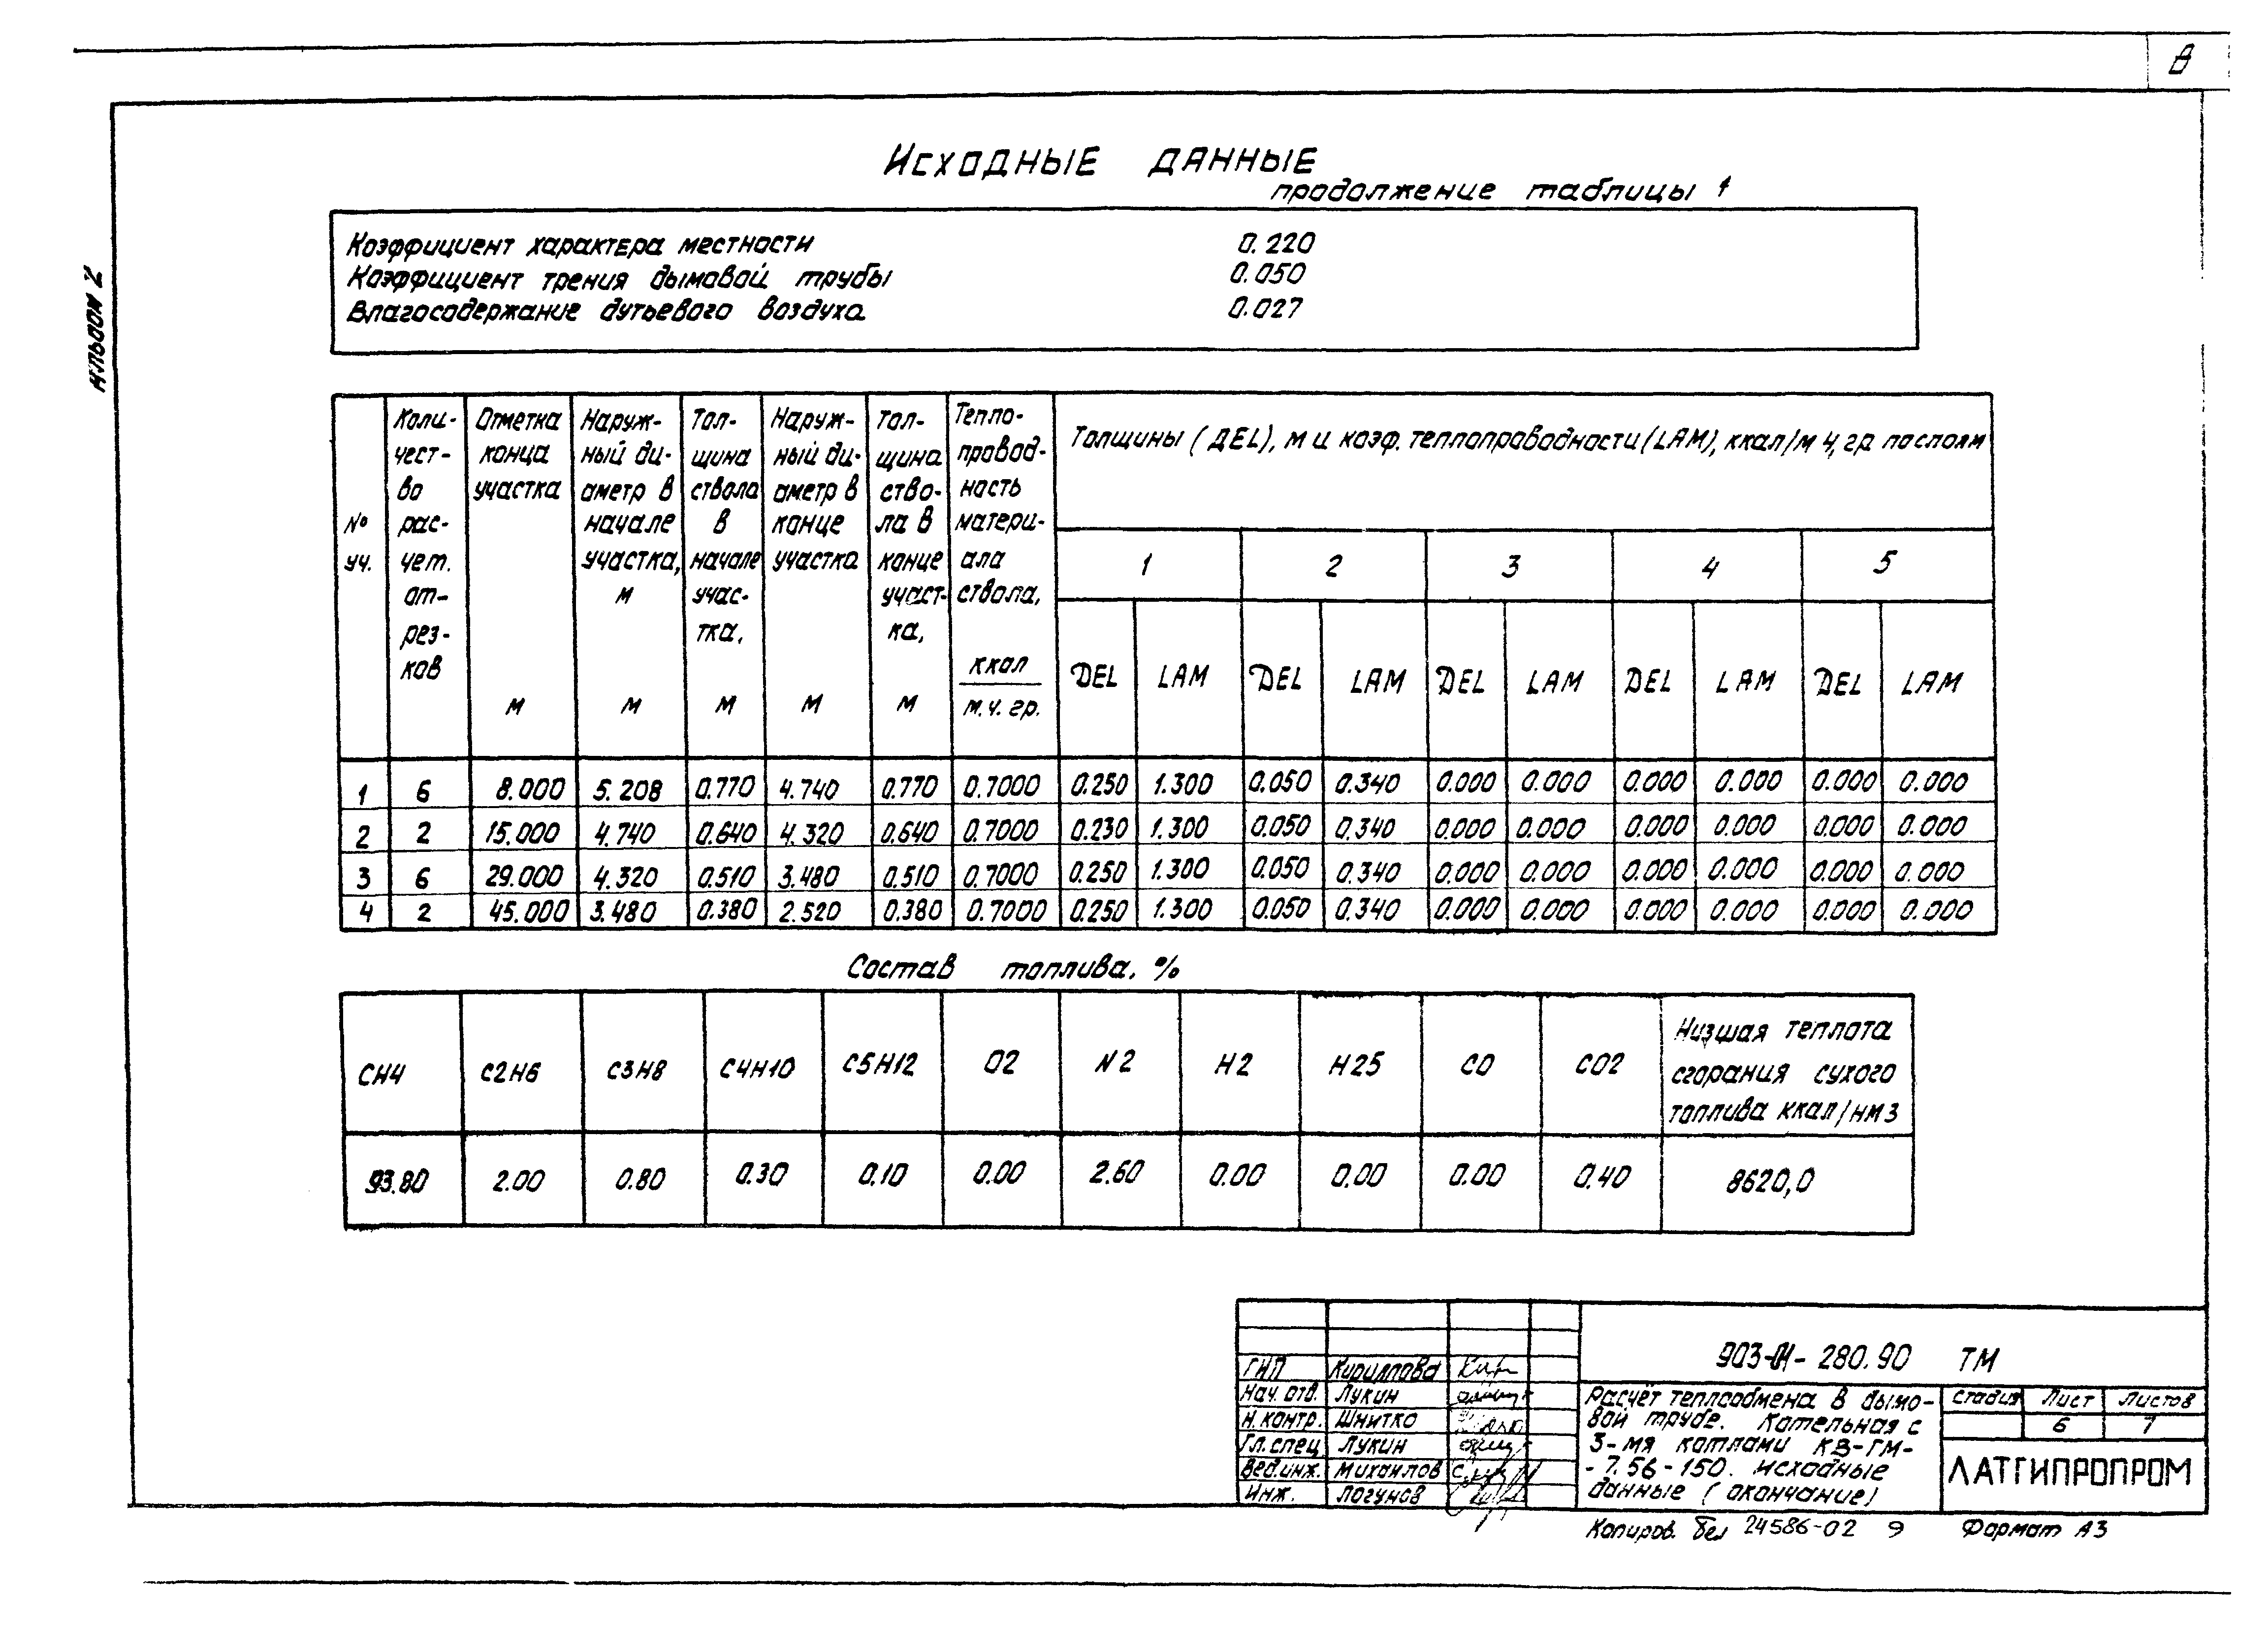 8
Альбом 2
Исходные данные
продолжение таблицы 1
Коэффициент характера местности 0.220
Коэффициент трения дымовой трубы 0.050
Влагосодержание дутьевого воздуха 0.027
№ уч. Количество расчет. отрезков Отметка конца участка м Наружный диаметр в начале участка, м м Толщина ствола в начале участка, м Наружный диаметр в конце участка м Толщина ствола в конце участка, м Теплопроводность материала ствола, ккал/м.ч.гр. Толщины (DEL), м и коэф. теплопроводности (LAM), ккал/м ч, гр послоям
1 2 3 4 5
DEL LAM DEL LAM DEL LAM DEL LAM DEL LAM
1 6 8.000 5.208 0.770 4.740 0.770 0.7000 0.250 1.300 0.050 0.340 0.000 0.000 0.000 0.000 0.000 0.000
2 2 15.000 4.740 0.640 4.320 0.640 0.7000 0.230 1.300 0.050 0.340 0.000 0.000 0.000 0.000 0.000 0.000
3 6 29.000 4.320 0.510 3.480 0.510 0.7000 0.250 1.300 0.050 0.340 0.000 0.000 0.000 0.000 0.000 0.000
4 2 45.000 3.480 0.380 2.520 0.380 0.7000 0.250 1.300 0.050 0.340 0.000 0.000 0.000 0.000 0.000 0.000
Состав топлива. %
CH4 C2H6 C3H8 C4H10 C5H12 O2 N2 H2 H2S CO CO2 Низшая теплота сгорания сухого топлива ккал/нм3
93.80 2.00 0.80 0.30 0.10 0.00 2.60 0.00 0.00 0.00 0.40 8620,0
903-01-280.90 ТМ
ГИП Кириллова
Нач. отд. Лукин
Н. контр. Шнитко
Гл. спец. Лукин
Вед. инж. Михайлов
Инж. Логунов
Расчёт теплообмена в дымо-
вой трубе. Котельная с
3-мя котлами КВ-ГМ-
-7.56-150. Исходные
данные (окончание)
Стадия Лист Листов
6 7
ЛАТГИПРОПРОМ
Копиров. Бел 24586-02 9 Формат А3